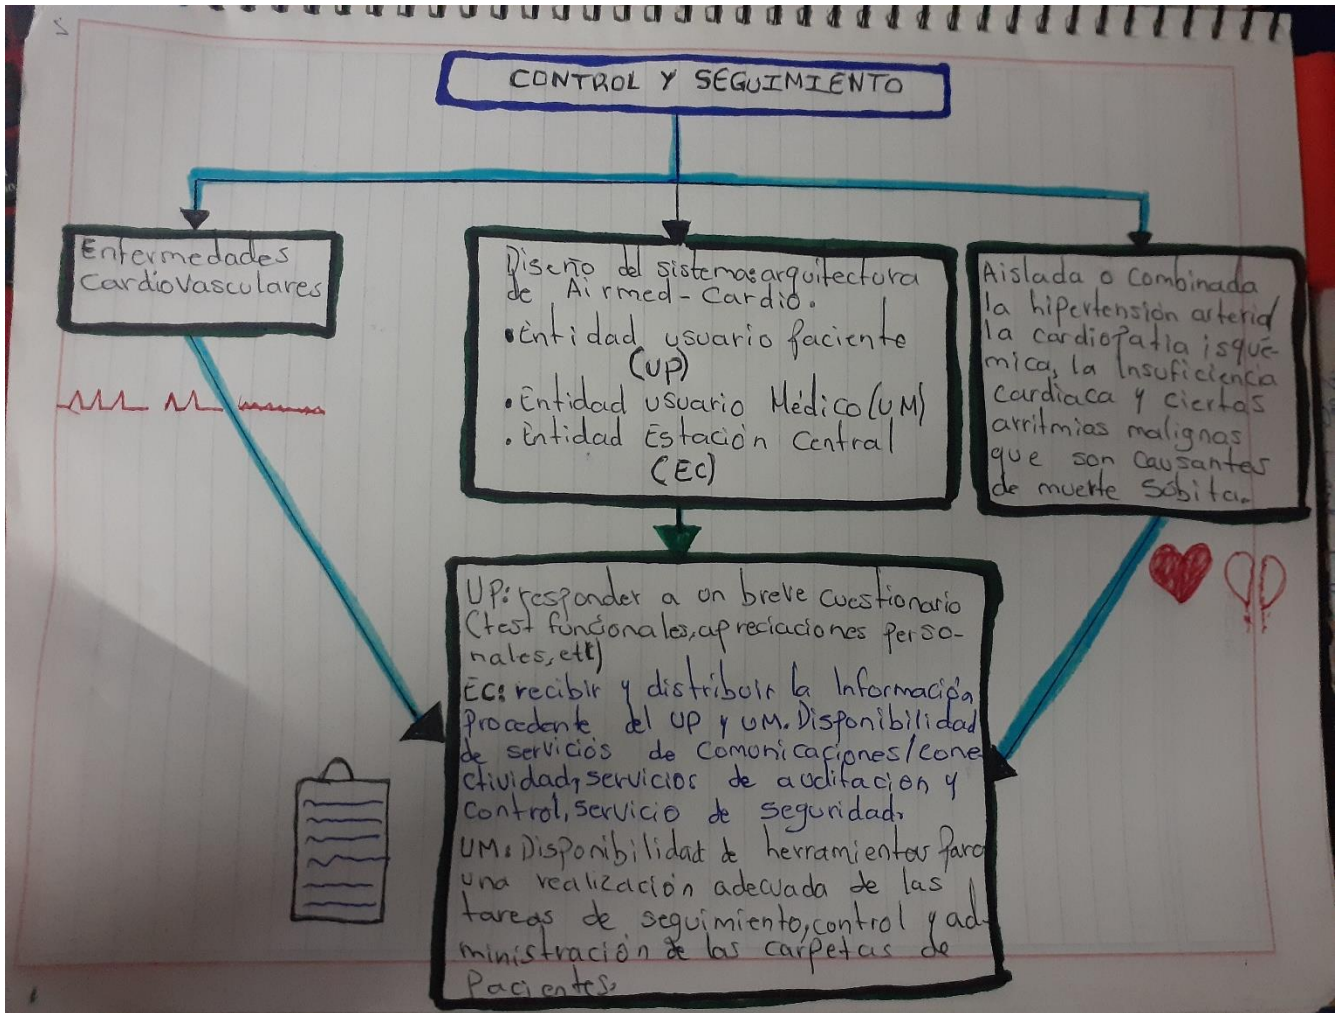 CONTROL Y SEGUIMIENTO
Enfermedades
CardioVasculares
Diseño del sistemas arquitectura
de Airmed-Cardio.
•Entidad usuario paciente
(UP)
•Entidad usuario Médico (UM)
•Entidad Estación Central
(EC)
Aislada o combinada
la hipertensión arterial
la cardiopatía isqué-
mica, la Insuficiencia
Cardiaca y ciertas
arritmias malignas
que son causantes
de muerte súbita.
UP: responder a un breve cuestionario
(test funcionales, apreciaciones perso-
nales, etc)
EC: recibir y distribuir la Información
Procedente del UP y UM. Disponibilidad
de servicios de Comunicaciones/cone
ctividad, servicios de auditación y
Control, servicio de seguridad.
UM: Disponibilidad de herramientas para
una realización adecuada de las
tareas de seguimiento, control y ad-
ministración de las carpetas de
Pacientes.